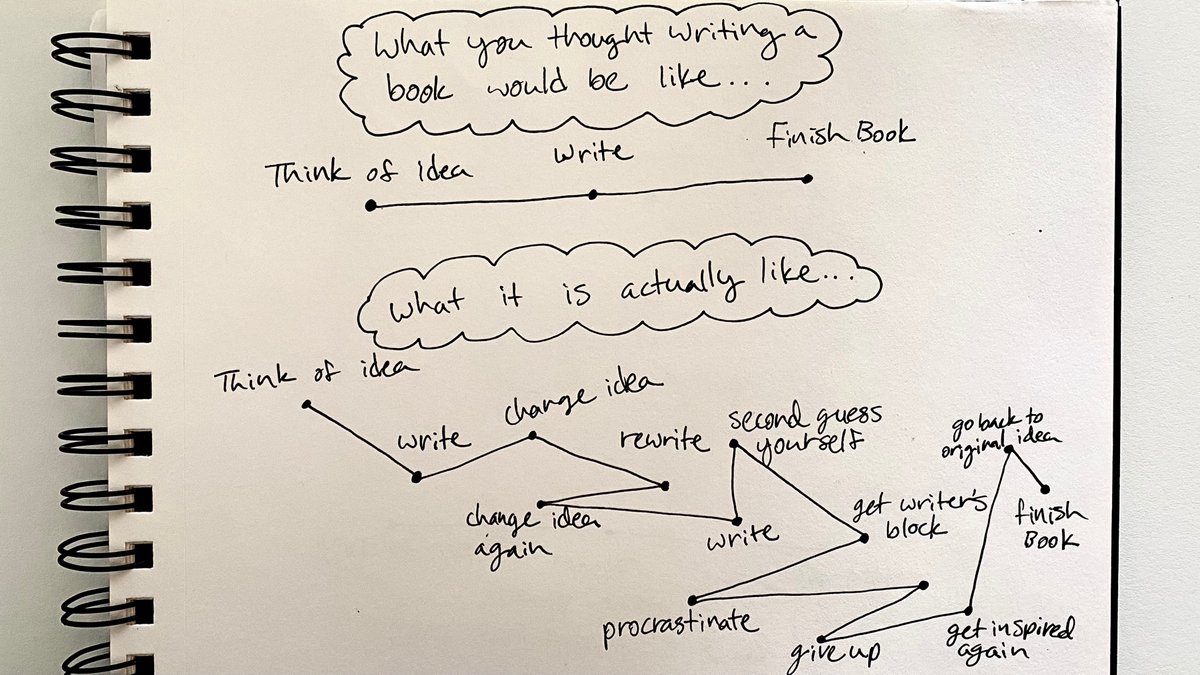 What you thought writing a
book would be like...
Think of Idea
Write
Finish Book
What it is actually like...
Think of idea
write
change idea
rewrite
change idea
again
write
second guess
yourself
get writer's
block
procrastinate
give up
get inspired
again
go back to
original idea
finish
Book